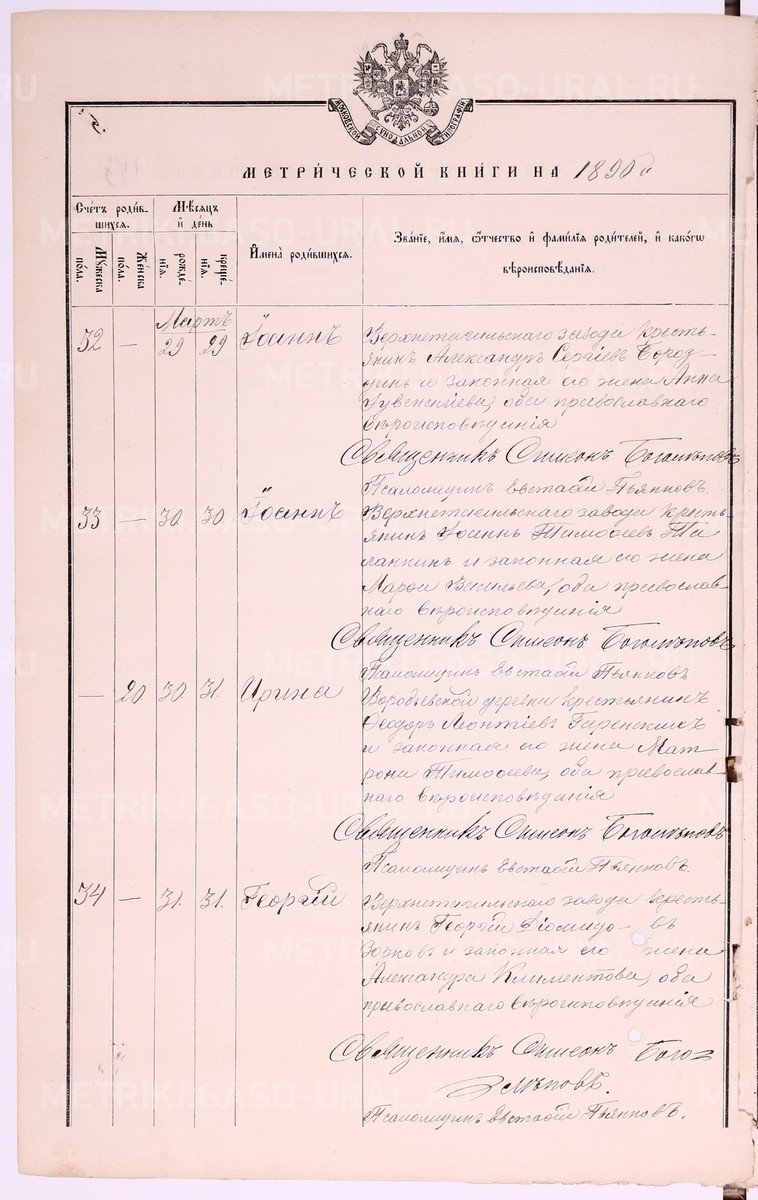 МОСКОВСКОЙ СѴНОДАЛЬНОЙ ТИПОГРАФІИ
МЕТРИ́ЧЕСКОЙ КНИ́ГИ НА 1890 й
Сче́тъ роди́в-
шихся.
Му́жеска
по́ла.
Же́нска
по́ла.
Мѣ́сяцъ
и́ де́нь
рожде́-
нїя.
креще́-
нїя.
И҆мена̀ роди́вшихся.
Зва́нїе, и́мя, ѻ҆́тчество и҆ фами́лїя роди́телей, и҆ како́гѡ
вѣроисповѣ́данїя.
Мартъ
32 — 29 29 Іоаннъ
Верхнетагильскаго завода кресть-
янинъ Александръ Сергіевъ Бороз-
динъ и законная его жена Анна
Іувеналіева, оба православнаго
вѣроисповѣданія
Священникъ Симеонъ Богомоловъ
Псаломщикъ Евстафій Пьянковъ.
33 — 30 30 Іоаннъ
Верхнетагильскаго завода кресть-
янинъ Іоаннъ Тимофеевъ Та
ланкинъ и законная его жена
Марфа Васильева, оба православ-
наго вѣроисповѣданія
Священникъ Симеонъ Богомоловъ
Псаломщикъ Евстафій Пьянковъ
— 20 30 31. Ирина
Воробьевской деревни крестьянинъ
Ѳеодоръ Леонтіевъ Гаренскихъ
и законная его жена Мат-
рона Тимофеева, оба православ-
наго вѣроисповѣданія
Священникъ Симеонъ Богомоловъ
Псаломщикъ Евстафій Пьянковъ.
34 — 31. 31. Георгій
Верхнетагильскаго завода кресть-
янинъ Георгій Діомидо- въ
Зорковъ и законная его жена
Александра Климентова, оба
православнаго вѣроисповѣданія
Священникъ Симеонъ Бого-
моловъ.
Псаломщикъ Евстафій Пьянковъ.
METRIKI.GASO-URAL.RU